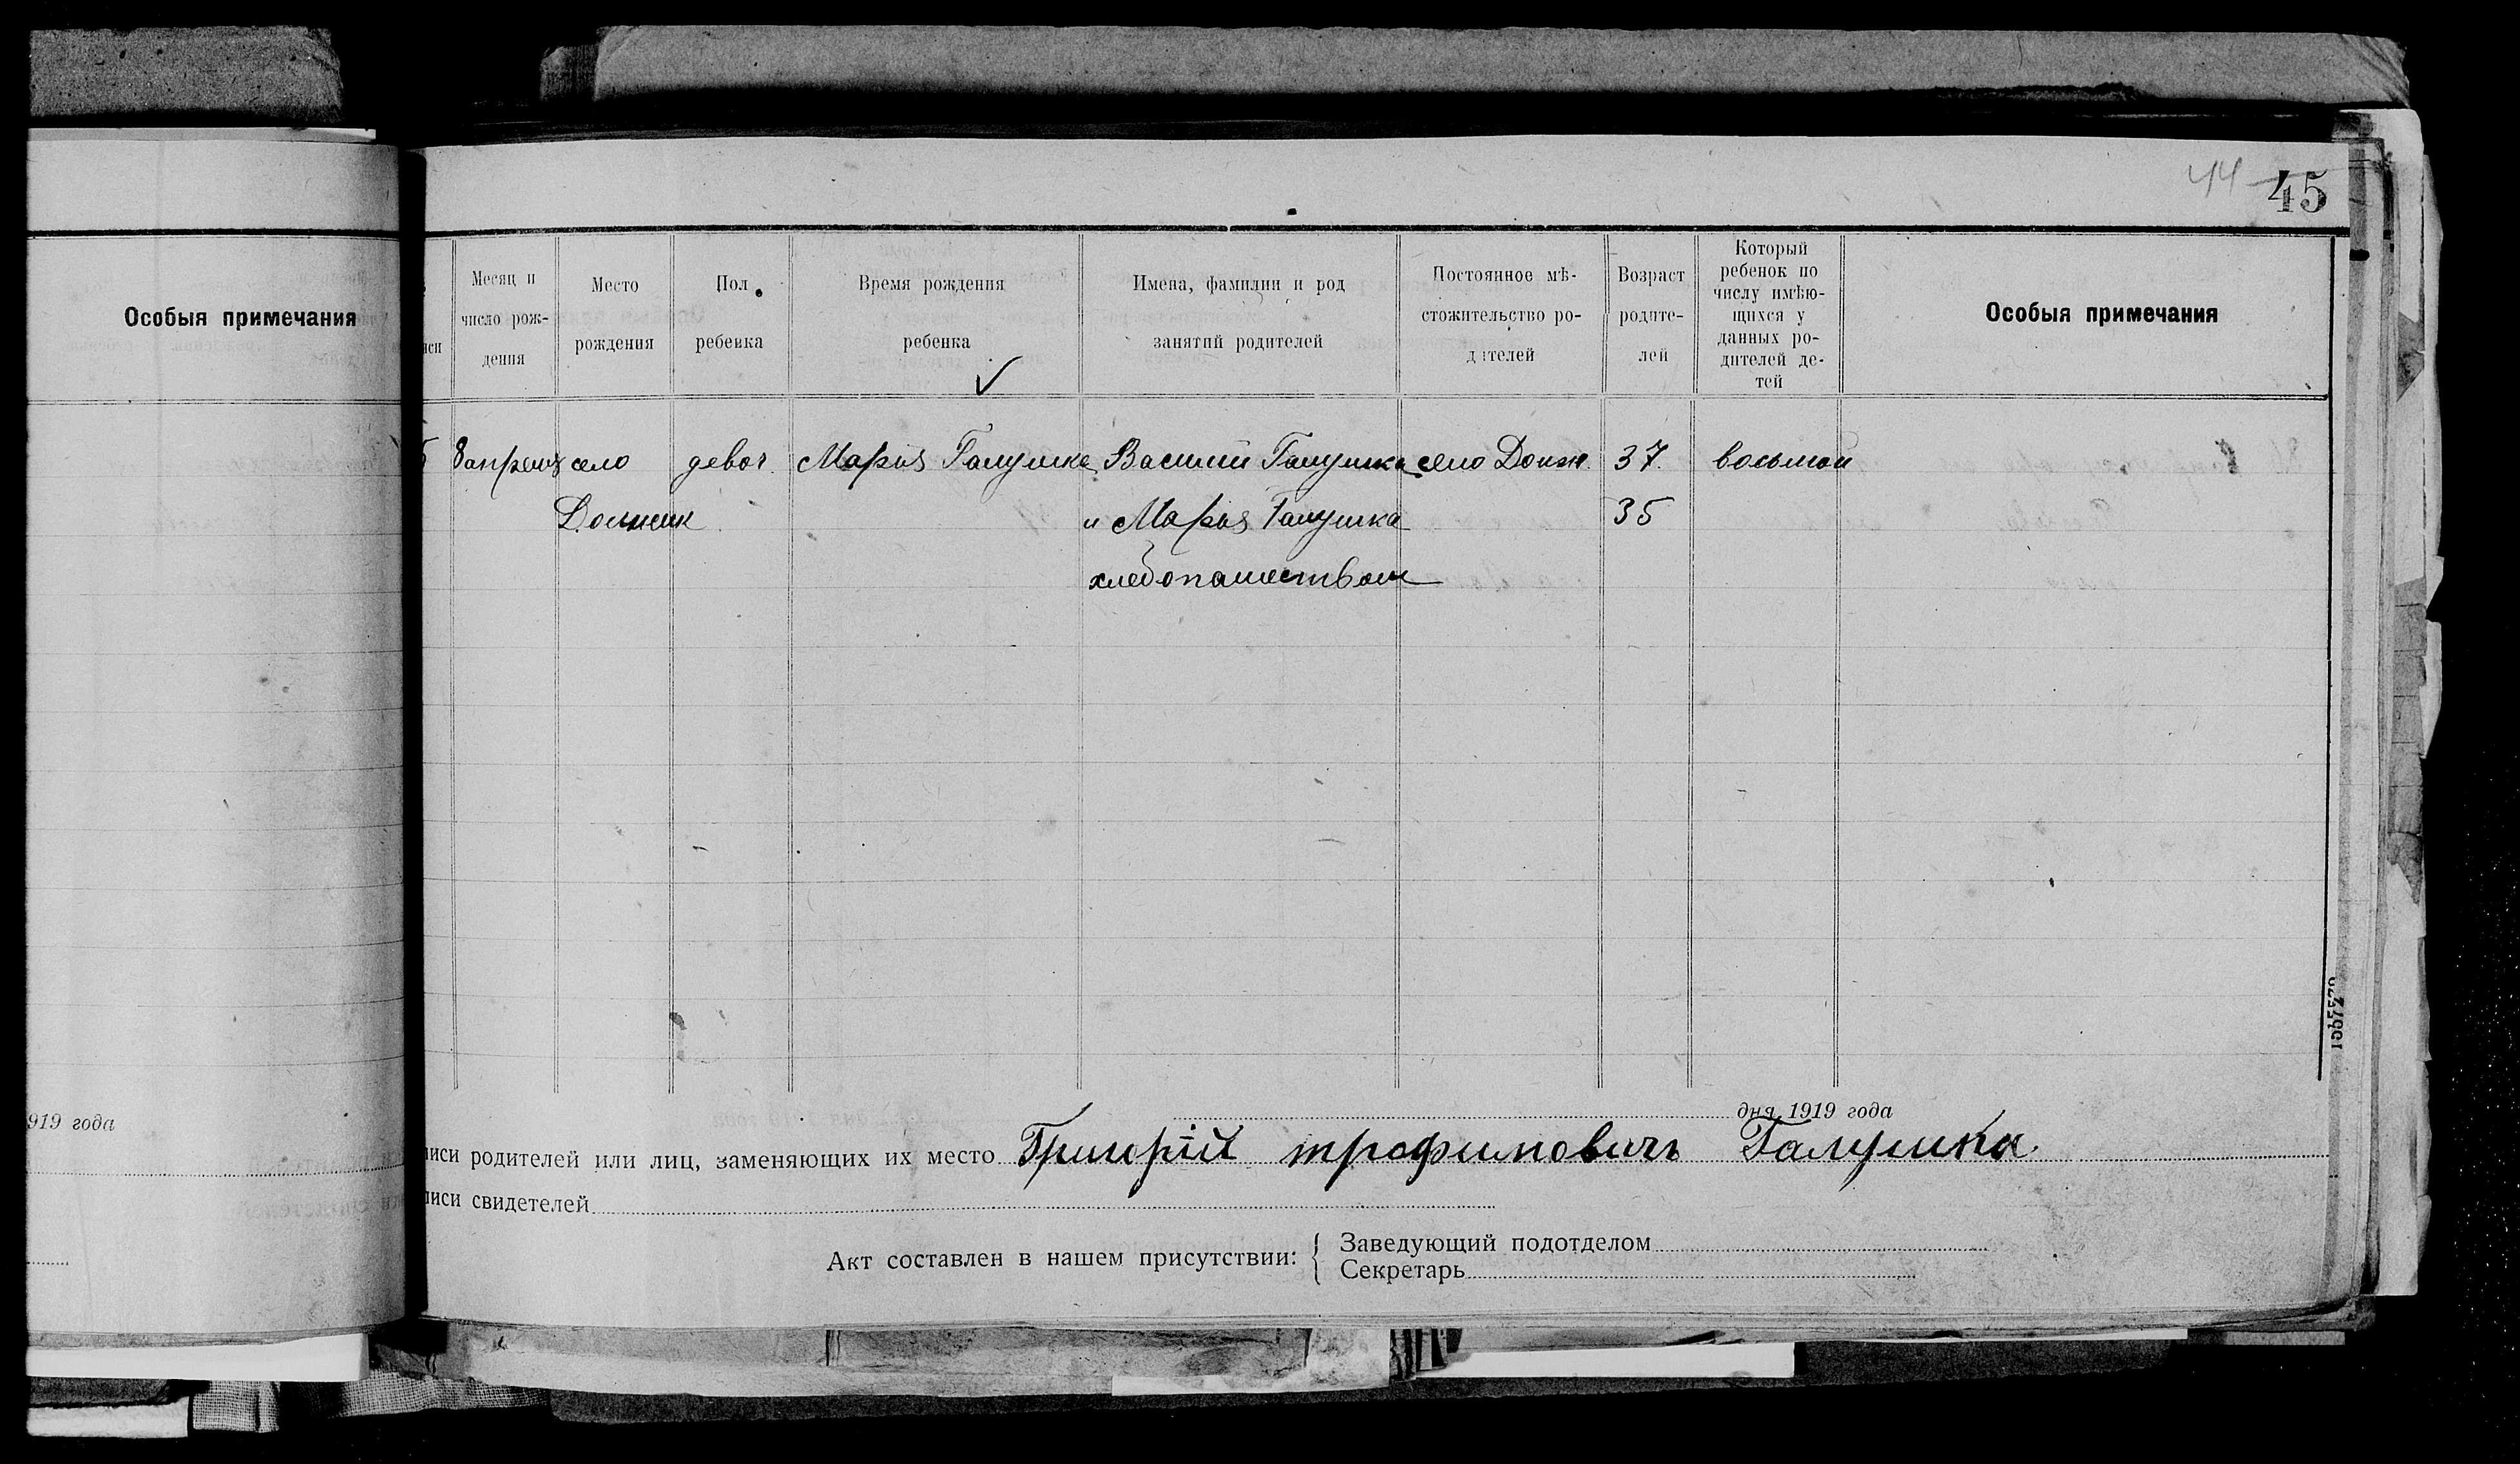 44 45
Особыя примечания
иси
Месяц и
число рож-
дения
Место
рождения
Пол
ребенка
Время рождения
ребенка
Имена, фамилии и род
занятий родителей
Постоянное мѣ-
стожительство ро-
дителей
Возраст
родите-
лей
Который
ребенок по
числу имѣю-
щихся у
данных ро-
дителей де-
тей
Особыя примечания
5 8 апреля село девоч. Марья Галушка Василий Галушка село Должик. 37. восьмой
Должик и Марья Галушка 35
хлебопашеством
919 года
дня 1919 года
писи родителей или лиц, заменяющих их место Григорій трофимовичъ Галушка.
писи свидетелей
Акт составлен в нашем присутствии:
Заведующий подотделом
Секретарь